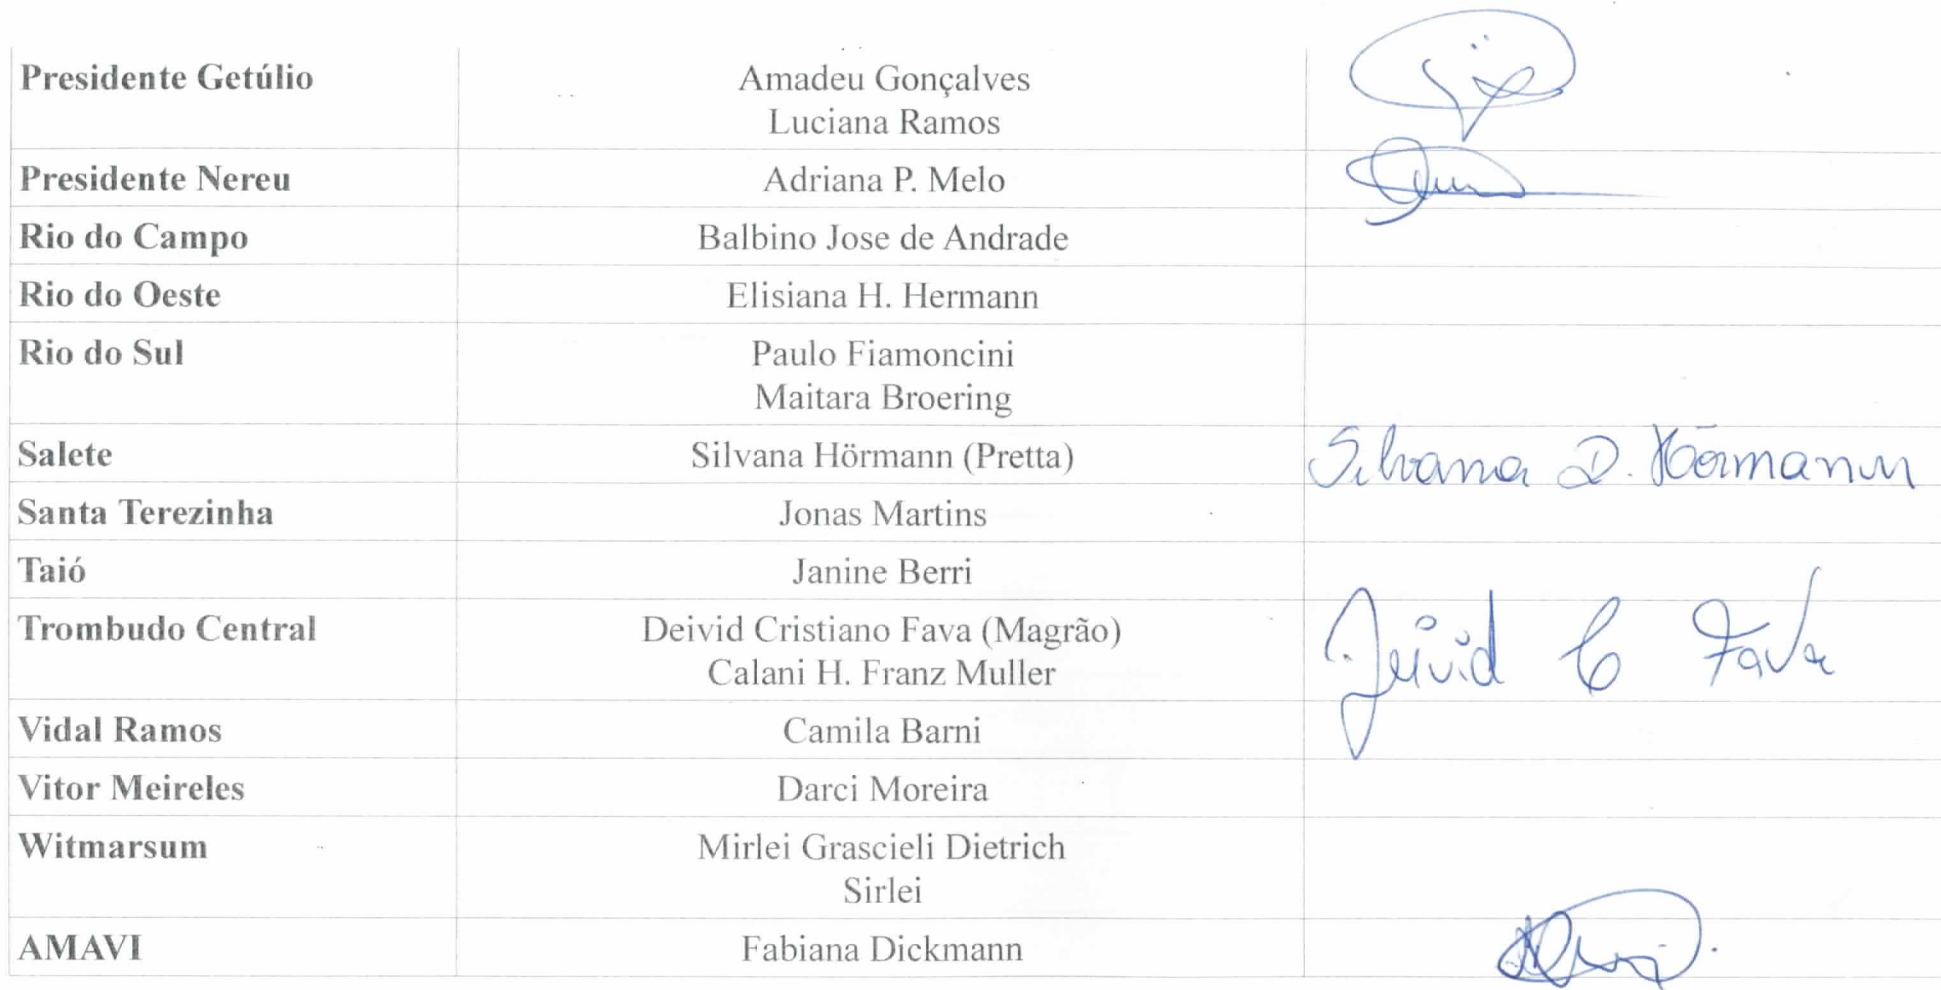 Presidente Getúlio
Amadeu Gonçalves
Luciana Ramos
Presidente Nereu
Adriana P. Melo
Rio do Campo
Balbino Jose de Andrade
Rio do Oeste
Elisiana H. Hermann
Rio do Sul
Paulo Fiamoncini
Maitara Broering
Salete
Silvana Hörmann (Pretta)
Silvana D. Hörmann
Santa Terezinha
Jonas Martins
Taió
Janine Berri
Trombudo Central
Deivid Cristiano Fava (Magrão)
Calani H. Franz Muller
Deivid C Fava
Vidal Ramos
Camila Barni
Vitor Meireles
Darci Moreira
Witmarsum
Mirlei Grascieli Dietrich
Sirlei
AMAVI
Fabiana Dickmann